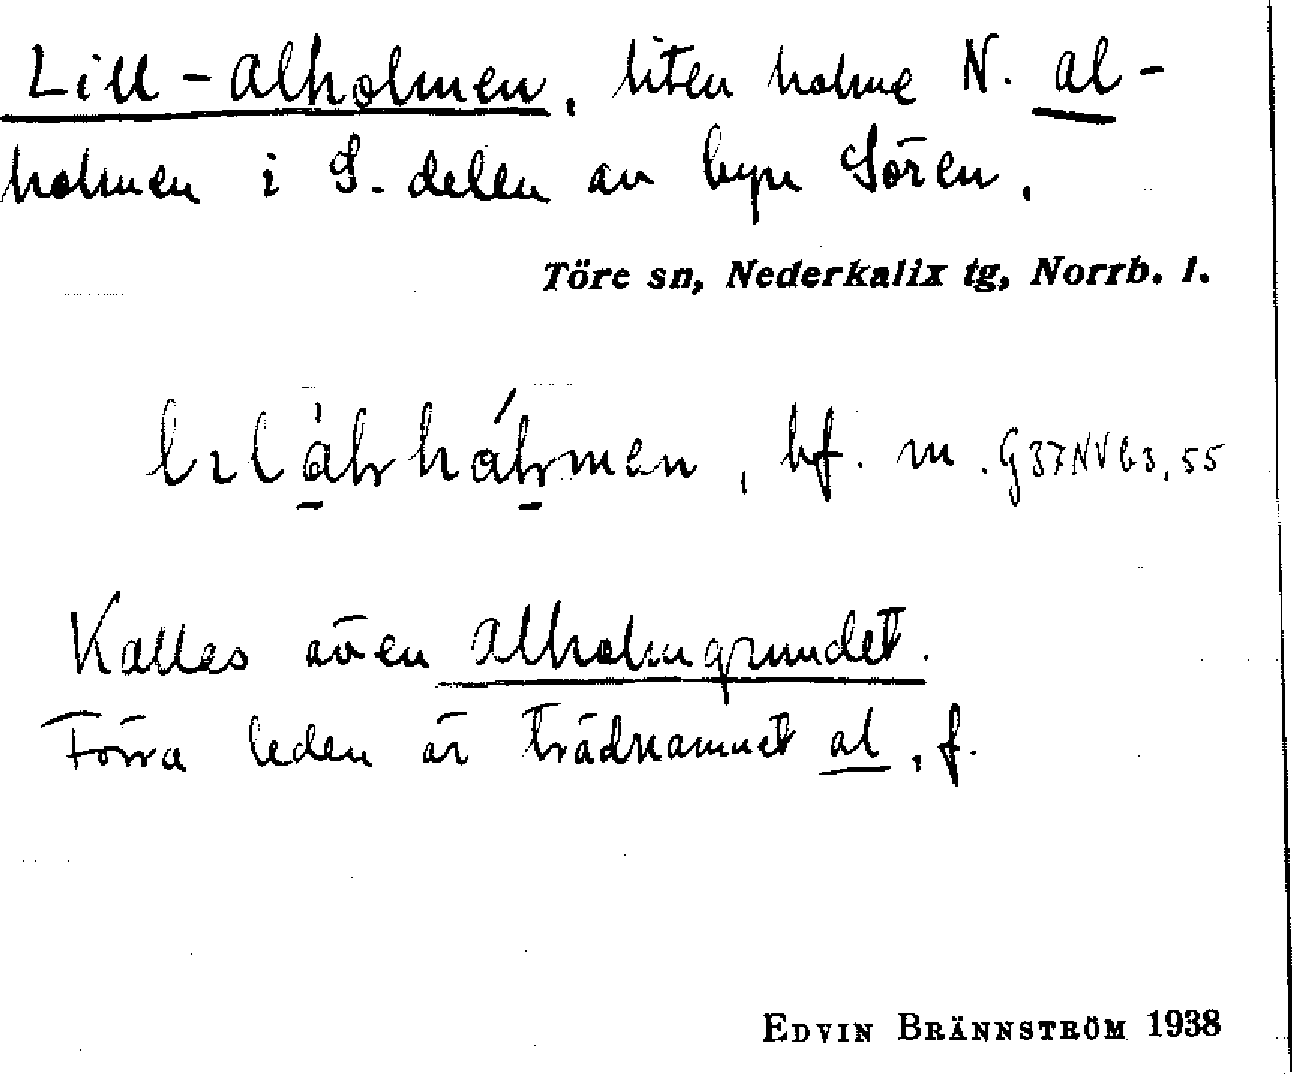 Lill-alholmen, liten holme N. al-
holmen i S. delen av byn Sören.
Töre sn, Nederkalix tg, Norrb. l.
, bf. m.
Kallas även alholmgrundet.
Förra leden är trädnamnet al, f.
EDVIN BRÄNNSTRÖM 1938